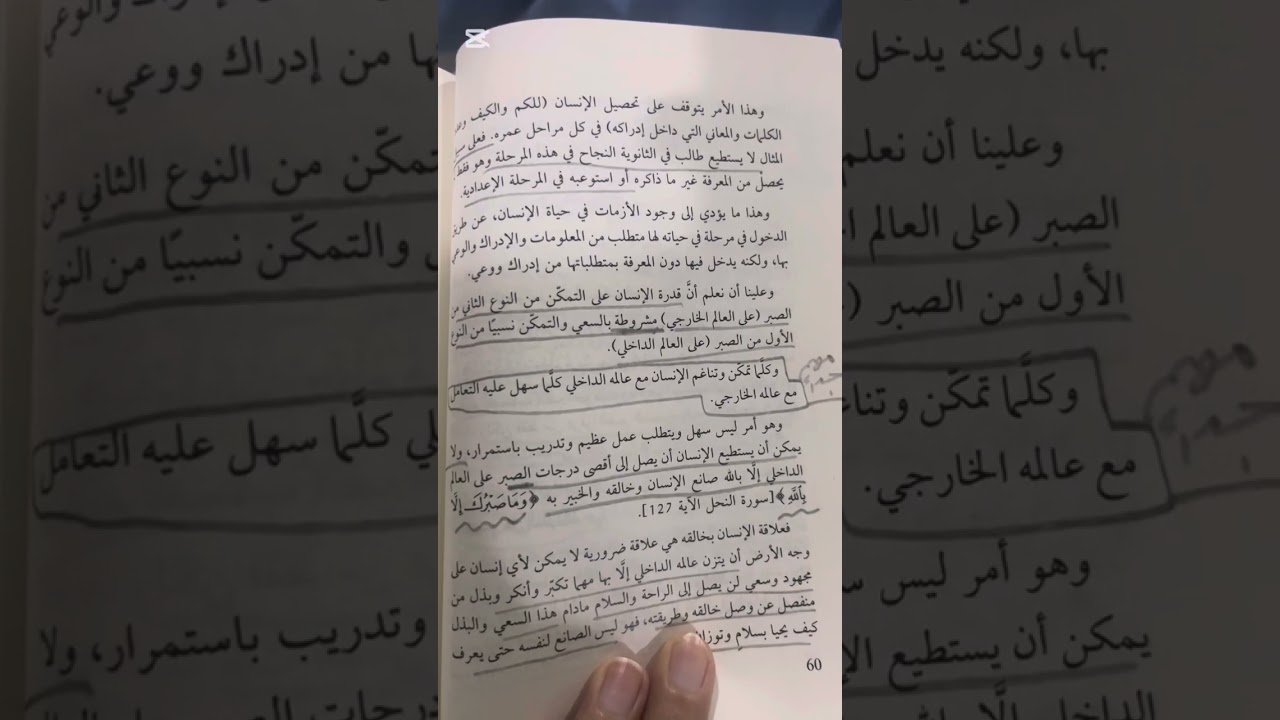 وهذا الأمر يتوقف على تحصيل الإنسان (للكم والكيف
الكلمات والمعاني التي داخل إدراكه) في كل مراحل عمره. فعلى
المثال لا يستطيع طالب في الثانوية النجاح في هذه المرحلة وهو فقط
يحصلْ من المعرفة غير ما ذاكره أو استوعبه في المرحلة الإعدادية.
وهذا ما يؤدي إلى وجود الأزمات في حياة الإنسان، عن طريق
الدخول في مرحلة في حياته لها متطلب من المعلومات والإدراك والوعي
بها، ولكنه يدخل فيها دون المعرفة بمتطلباتها من إدراك ووعي.
وعلينا أن نعلم أنَّ قدرة الإنسان على التمكّن من النوع الثاني من
الصبر (على العالم الخارجي) مشروطة بالسعي والتمكّن نسبيًا من النوع
الأول من الصبر (على العالم الداخلي).
وكلَّما تمكّن وتناغم الإنسان مع عالمه الداخلي كلَّما سهل عليه التعامل
مع عالمه الخارجي.
وهو أمر ليس سهل ويتطلب عمل عظيم وتدريب باستمرار، ولا
يمكن أن يستطيع الإنسان أن يصل إلى أقصى درجات الصبر على العالم
الداخلي إلَّا بالله صانع الإنسان وخالقه والخبير به ﴿وَمَا صَبْرُكَ إِلَّا
بِاللَّهِ﴾ [سورة النحل الآية 127].
فعلاقة الإنسان بخالقه هي علاقة ضرورية لا يمكن لأي إنسان على
وجه الأرض أن يتزن عالمه الداخلي إلَّا بها مهما تكبّر وأنكر وبذل من
مجهود وسعي لن يصل إلى الراحة والسلام مادام هذا السعي والبذل
منفصل عن وصل خالقه وطريقته، فهو ليس الصانع لنفسه حتى يعرف
كيف يحيا بسلامٍ
60